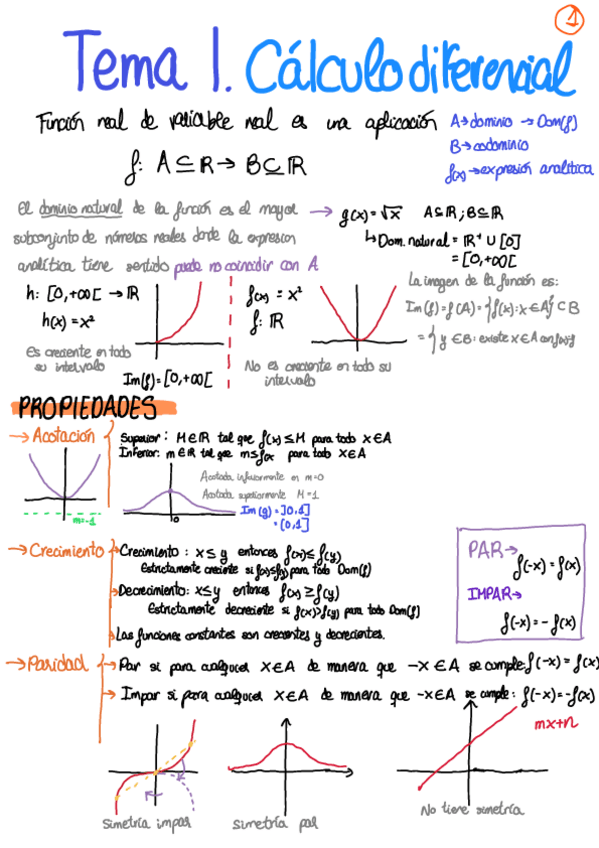 1
Tema 1. Cálculo diferencial
Función real de variable real es una aplicación
A→dominio → Dom(f)
B→codominio
f(x)→expresión analítica
f: A⊆ℝ→ B⊆ℝ
El dominio natural de la función es el mayor
subconjunto de números reales donde la expresión
analítica tiene sentido puede no coincidir con A
→ g(x)=√x A⊆ℝ; B⊆ℝ
↳Dom. natural = ℝ⁺ ∪ [0]
= [0,+∞[
h: [0,+∞[ → ℝ
h(x) = x²
Es creciente en todo
su intervalo
Im(f)=[0,+∞[
f(x) = x²
f: ℝ
No es creciente en todo su
intervalo
La imagen de la función es:
Im(f)=f(A)={f(x): x∈A}⊂B
={y∈B: existe x∈A con f(x)=y
PROPIEDADES
→ Acotación
Superior: M∈ℝ tal que f(x)≤M para todo x∈A
Inferior: m∈ℝ tal que m≤f(x) para todo x∈A
m=-1
0
Acotada inferiormente en m=0
Acotada superiormente M=1
Im(g)=]0,1]
=(0,1]
→ Crecimiento
Crecimiento: x≤y entonces f(x)≤f(y)
Estrictamente creciente si f(x)≤f(y) para todo Dom(f)
Decrecimiento: x≤y entonces f(x)≥f(y)
Estrictamente decreciente si f(x)>f(y) para todo Dom(f)
Las funciones constantes son crecientes y decrecientes.
PAR→
f(-x)=f(x)
IMPAR→
f(-x)=-f(x)
→ Paridad
Par si para cualquier x∈A de manera que -x∈A se cumple: f(-x)=f(x)
Impar si para cualquier x∈A de manera que -x∈A se cumple: f(-x)=-f(x)
mx+n
simetría impar
simetría par
No tiene simetría